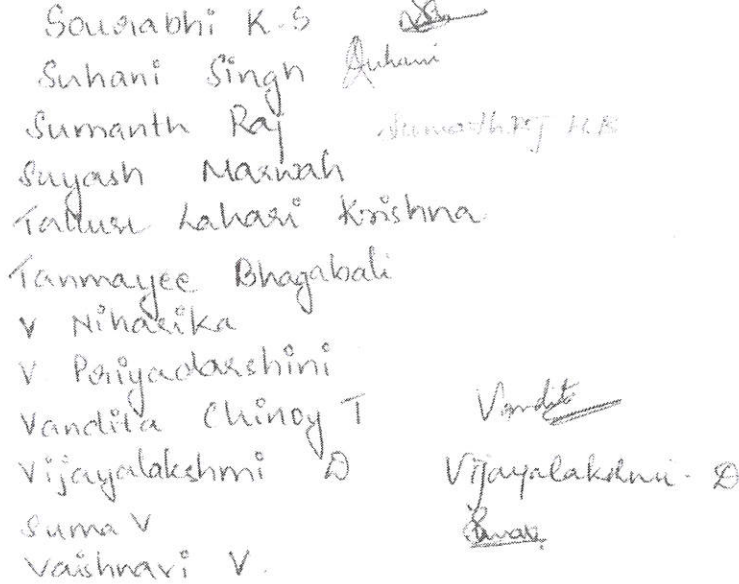 Sourabhi K.S
Suhani Singh Suhani
Sumanth Raj Sumanth Raj H.B
Suyash Marwah
Talluri Lahari Krishna
Tanmayee Bhagabali
V Niharika
V Priyadarshini
Vandita Chinoy T Vandita
Vijayalakshmi D Vijayalakshmi. D
Suma V
Vaishnavi V.